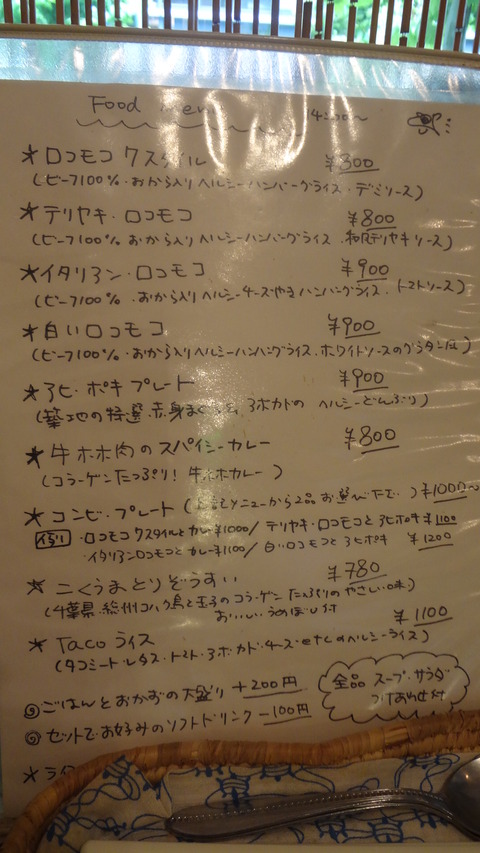 Food Menu
★ロコモコ クスタイル ¥800
(ビーフ100%・おから入りヘルシーハンバーグライス・デミソース)
★テリヤキ・ロコモコ ¥800
(ビーフ100%・おから入りヘルシーハンバーグライス・和風テリヤキソース)
★イタリアン・ロコモコ ¥900
(ビーフ100%・おから入りヘルシーチーズやきハンバーグライス・トマトソース)
★白いロコモコ ¥900
(ビーフ100%・おから入りヘルシーハンバーグライス・ホワイトソースのグラタン風)
★アヒ・ポキプレート ¥900
(築地の特選赤身まぐろ アボカドの ヘルシーどんぶり)
★牛ホホ肉のスパイシーカレー ¥800
(コラーゲンたっぷり!牛ホホカレー)
★コンビ・プレート( メニューから2品お選び )¥1000~
・ロコモコクスタイルとカレー¥1000/テリヤキ・ロコモコとアヒポキ¥1100
・イタリアンロコモコとカレー¥1100/白いロコモコとアヒポキ ¥1200
★こくうまとりぞうすい ¥780
(千葉県・総州コハク鳥と玉子のコラーゲンたっぷりのやさしい味)
おいしいうめぼし付
★Tacoライス ¥1100
(タコミート・レタス・トマト・アボカド・チーズetcのヘルシーライス)
◎ごはんとおかずの大盛り+200円
◎セットでお好みのソフトドリンク-100円
全品 スープ・サラダ
つけあわせ付